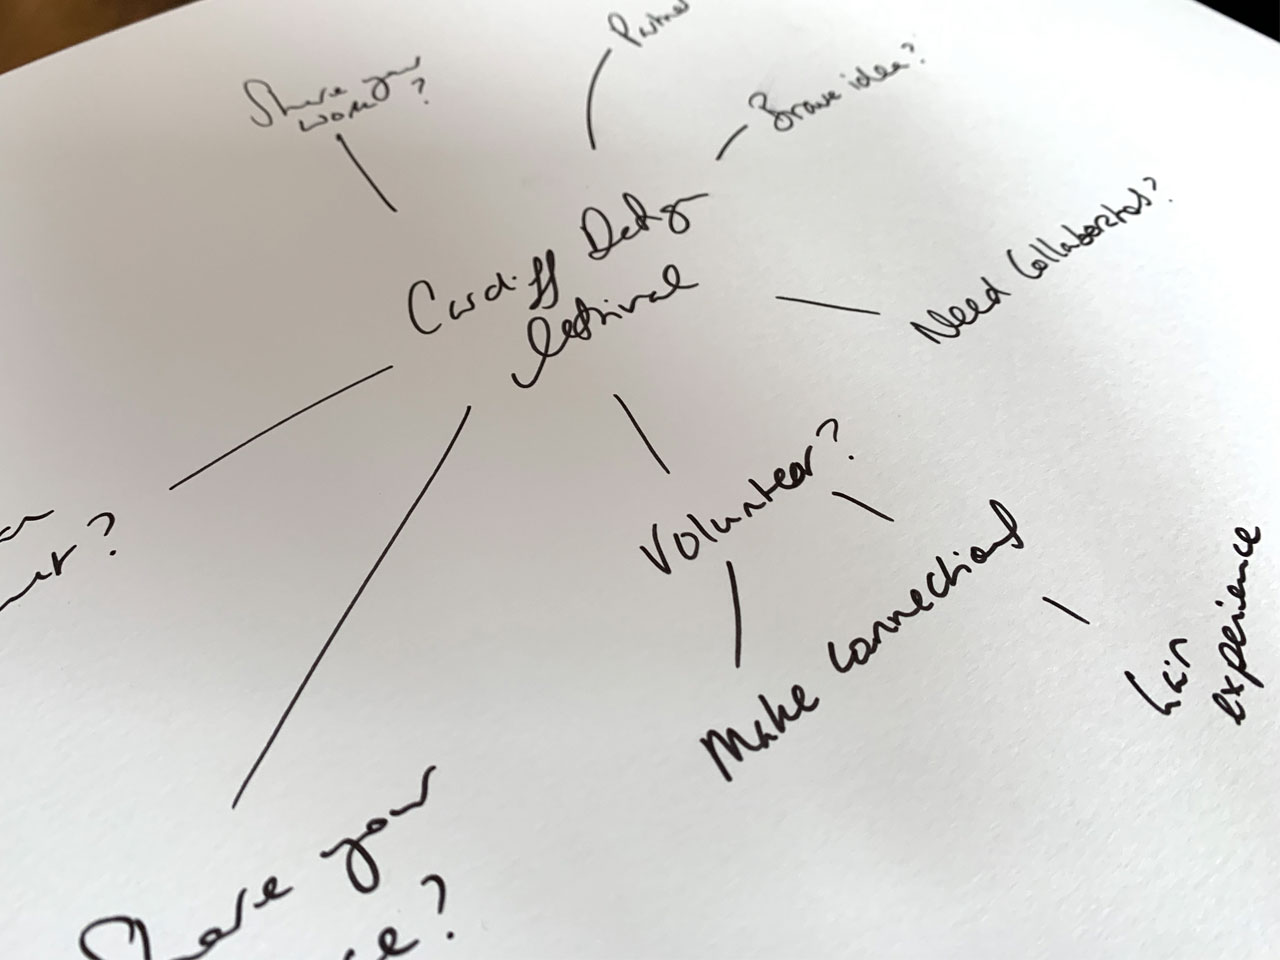 Partner
Share your
work?
Brave idea?
Cardiff Design
Festival
Need Collaborators?
Volunteer?
Make connections
Gain
experience
Share your